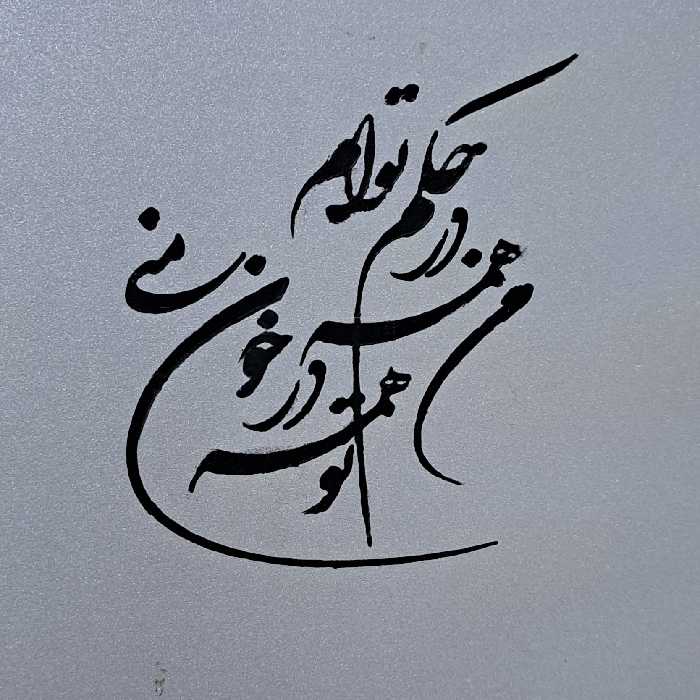 من همه در حکم توام
تو همه در خون منی